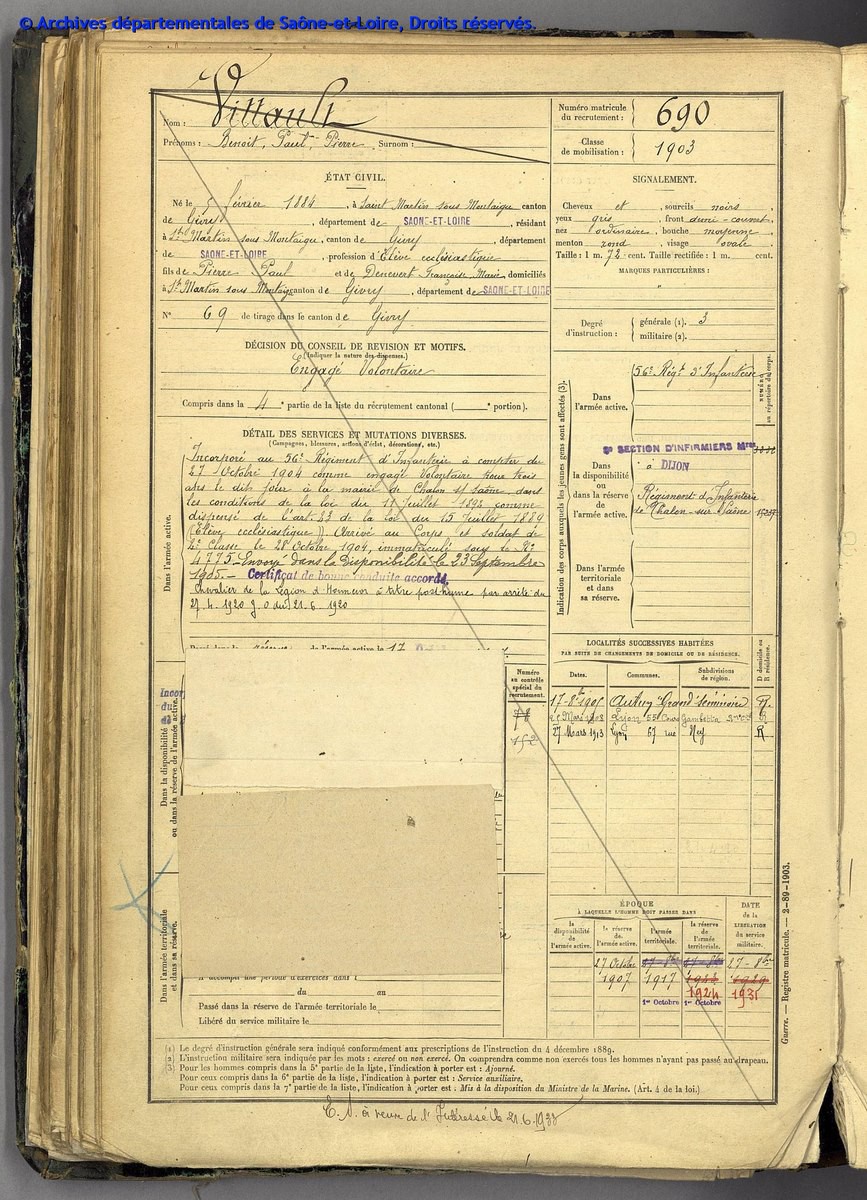 © Archives départementales de Saône-et-Loire, Droits réservés.
Nom : Villault
Prénoms : Benoit, Paul, Pierre Surnom :
ÉTAT CIVIL.
Né le 5 février 1884, à Saint Martin sous Montaigu canton
de Givry, département de SAONE-ET-LOIRE, résidant
à St Martin sous Montaigu, canton de Givry, département
de SAONE-ET-LOIRE, profession d'Elève ecclésiastique
fils de Pierre Paul et de Denevert Françoise Marie, domiciliés
à St Martin sous Montaigu canton de Givry, département de SAONE-ET-LOIRE
N° 69 de tirage dans le canton de Givry
DÉCISION DU CONSEIL DE REVISION ET MOTIFS.
(Indiquer la nature des dispenses.)
Engagé Volontaire
Compris dans la 4e partie de la liste du recrutement cantonal ( e portion).
DÉTAIL DES SERVICES ET MUTATIONS DIVERSES.
(Campagnes, blessures, actions d'éclat, décorations, etc.)
Dans l'armée active.
Incorporé au 56e Régiment d'Infanterie à compter du
27 Octobre 1904 comme engagé Volontaire pour trois
ans le dit jour à la mairie de Chalon s/ Saône dans
les conditions de la loi du 11 Juillet 1892 comme
dispensé de l'art. 23 de la loi du 15 Juillet 1889
(Elève ecclésiastique). Arrivé au Corps et soldat de
2e Classe le 28 Octobre 1904, immatriculé sous le N°
4775 - Envoyé dans la Disponibilité le 23 Septembre
1905. - Certificat de bonne conduite accordé.
Chevalier de la Légion d'Honneur à titre posthume par arrêté du
27. 4. 1920 J. O du 21. 6 1920
réserve de l'armée active le 17
Dans la disponibilité
ou dans la réserve de l'armée active.
Incor
du
Numéro
au contrôle
spécial du
recrutement.
78
152
Dans l'armée territoriale
et dans sa réserve.
A accompli une période d'exercices dans l
du au
Passé dans la réserve de l'armée territoriale le
Libéré du service militaire le
Numéro matricule
du recrutement : 690
Classe
de mobilisation : 1903
SIGNALEMENT.
Cheveux et, sourcils noirs
yeux gris, front demi-couvert
nez ordinaire, bouche moyenne
menton rond, visage ovale
Taille : 1 m. 72 cent. Taille rectifiée : 1 m. cent.
MARQUES PARTICULIÈRES :
"
Degré
d'instruction :
générale (1). 3
militaire (2).
Indication des corps auxquels les jeunes gens sont affectés (3).
NUMÉRO
au répertoire du corps.
Dans
l'armée active.
56e Régt d'Infanterie
Dans
la disponibilité
ou
dans la réserve
de
l'armée active.
8e SECTION D'INFIRMIERS Mres
à DIJON
Régiment d'Infanterie
de Chalon-sur-Saône
Dans l'armée
territoriale
et dans
sa réserve.
LOCALITÉS SUCCESSIVES HABITÉES
PAR SUITE DE CHANGEMENTS DE DOMICILE OU DE RÉSIDENCE.
D domicile ou
R résidence.
Dates. Communes. Subdivisions
de région.
17-8bre 1905 Autun Grand Séminaire R.
1908 Lyon 55 Cours Gambetta R
27 Mars 1913 Lyon 67 rue Ney R
ÉPOQUE
À LAQUELLE L'HOMME DOIT PASSER DANS
DATE
de la
LIBÉRATION
du service
militaire.
la
disponibilité
de
l'armée active.
la réserve
de
l'armée active.
l'armée
territoriale.
la réserve
de
l'armée
territoriale.
27 Octobre 27-8bre 27-8bre 27-8bre
1907 1917 1924 1929
1924 1931
1er Octobre 1er Octobre
Guerre. — Registre matricule. — 2-89-1903.
(1) Le degré d'instruction générale sera indiqué conformément aux prescriptions de l'instruction du 4 décembre 1889.
(2) L'instruction militaire sera indiquée par les mots : exercé ou non exercé. On comprendra comme non exercés tous les hommes n'ayant pas passé au drapeau.
(3) Pour les hommes compris dans la 5e partie de la liste, l'indication à porter est : Ajourné.
Pour ceux compris dans la 6e partie de la liste, l'indication à porter est : Service auxiliaire.
Pour ceux compris dans la 7e partie de la liste, l'indication à porter est : Mis à la disposition du Ministre de la Marine. (Art. 4 de la loi.)
de l'Intéressé le 21.6.1933